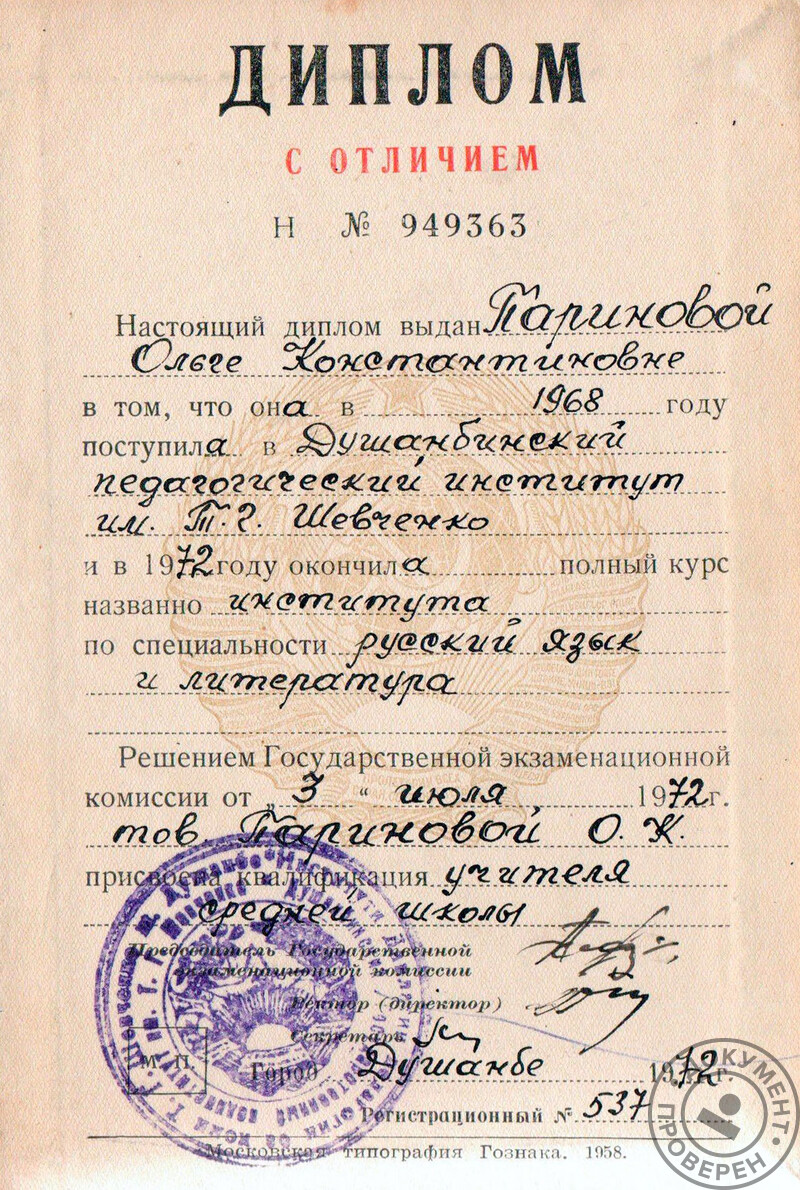 ДИПЛОМ
С ОТЛИЧИЕМ
Н № 949363
Настоящий диплом выдан Париновой
Ольге Константиновне
в том, что она в 1968 году
поступила в Душанбинский
педагогический институт
им. Т. Г. Шевченко
и в 1972 году окончила полный курс
названно института
по специальности русский язык
и литература
Решением Государственной экзаменационной
комиссии от „3“ июля 1972 г.
тов. Париновой О. К.
присвоена квалификация учителя
средней школы
Председатель Государственной
экзаменационной комиссии
Ректор (директор)
Секретарь
М. П.
Город Душанбе 1972 г.
Регистрационный № 537
Московская типография Гознака. 1958.
ДОКУМЕНТ ПРОВЕРЕН